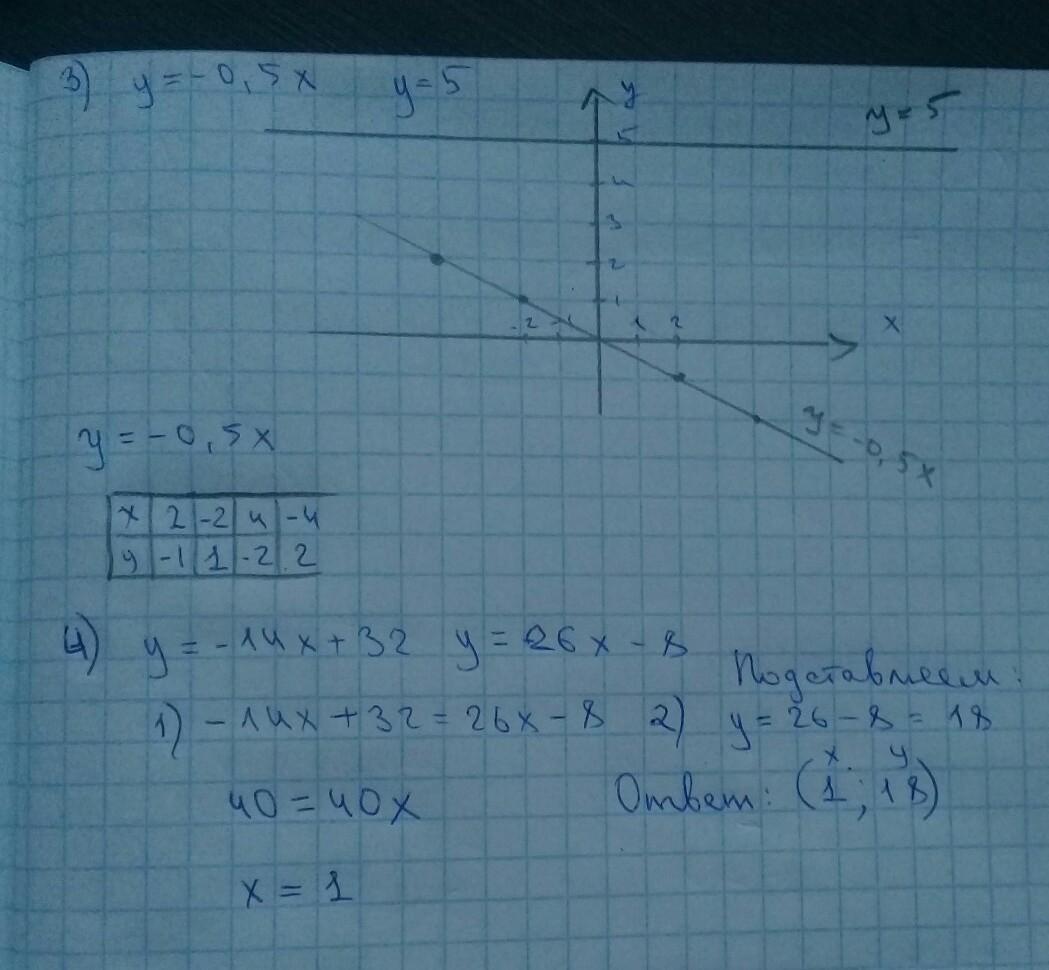 3) y = -0,5x y = 5
y
y = 5
5
4
3
2
1
-2 -1 1 2 x
y = -0,5x
y = -0,5x
x 2 -2 4 -4
y -1 1 -2 2
4) y = -14x + 32 y = 26x - 8
Подставляем:
1) -14x + 32 = 26x - 8 2) y = 26 - 8 = 18
x y
40 = 40x Ответ: (1 ; 18)
x = 1